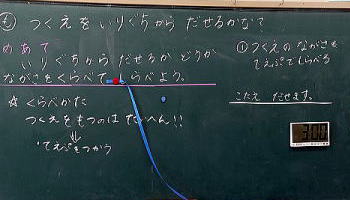 も つくえを いりぐちから だせるかな?
めあて
いりぐちから だせるか どうか
ながさをくらべて しらべよう。
☆ くらべかた
つくえをもつのは たいへん!!
⇓
・てえぷをつかう
① つくえの ながさを
てえぷで しらべる
こたえ だせます。
3:00